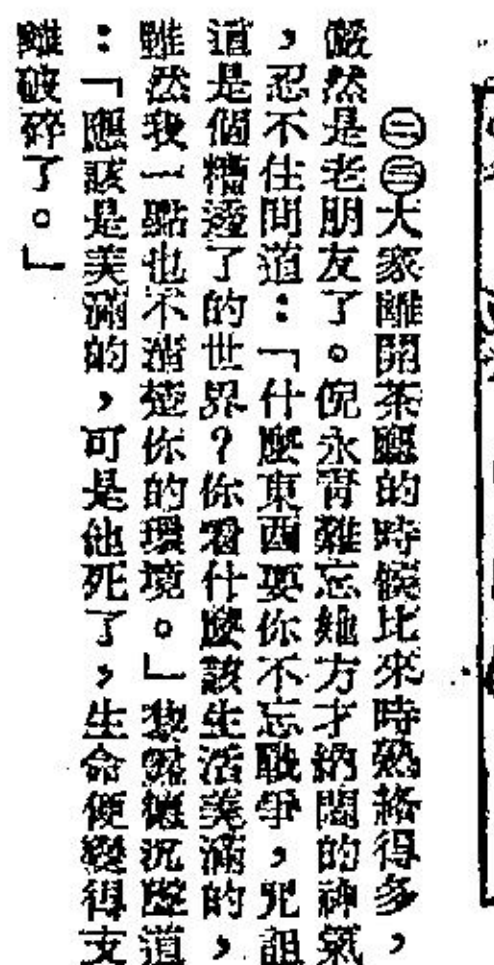 ㊁㊂大家離開茶廳的時候比來時熟絡得多，
儼然是老朋友了。倪永青難忘她方才納悶的神氣
，忍不住問道：「什麼東西要你不忘戰爭，咒詛
道是個糟透了的世界？你看什麼該生活美滿的，
雖然我一點也不清楚你的環境。」黎露德沉墜道
：「應該是美滿的，可是他死了，生命便變得支
離破碎了。」